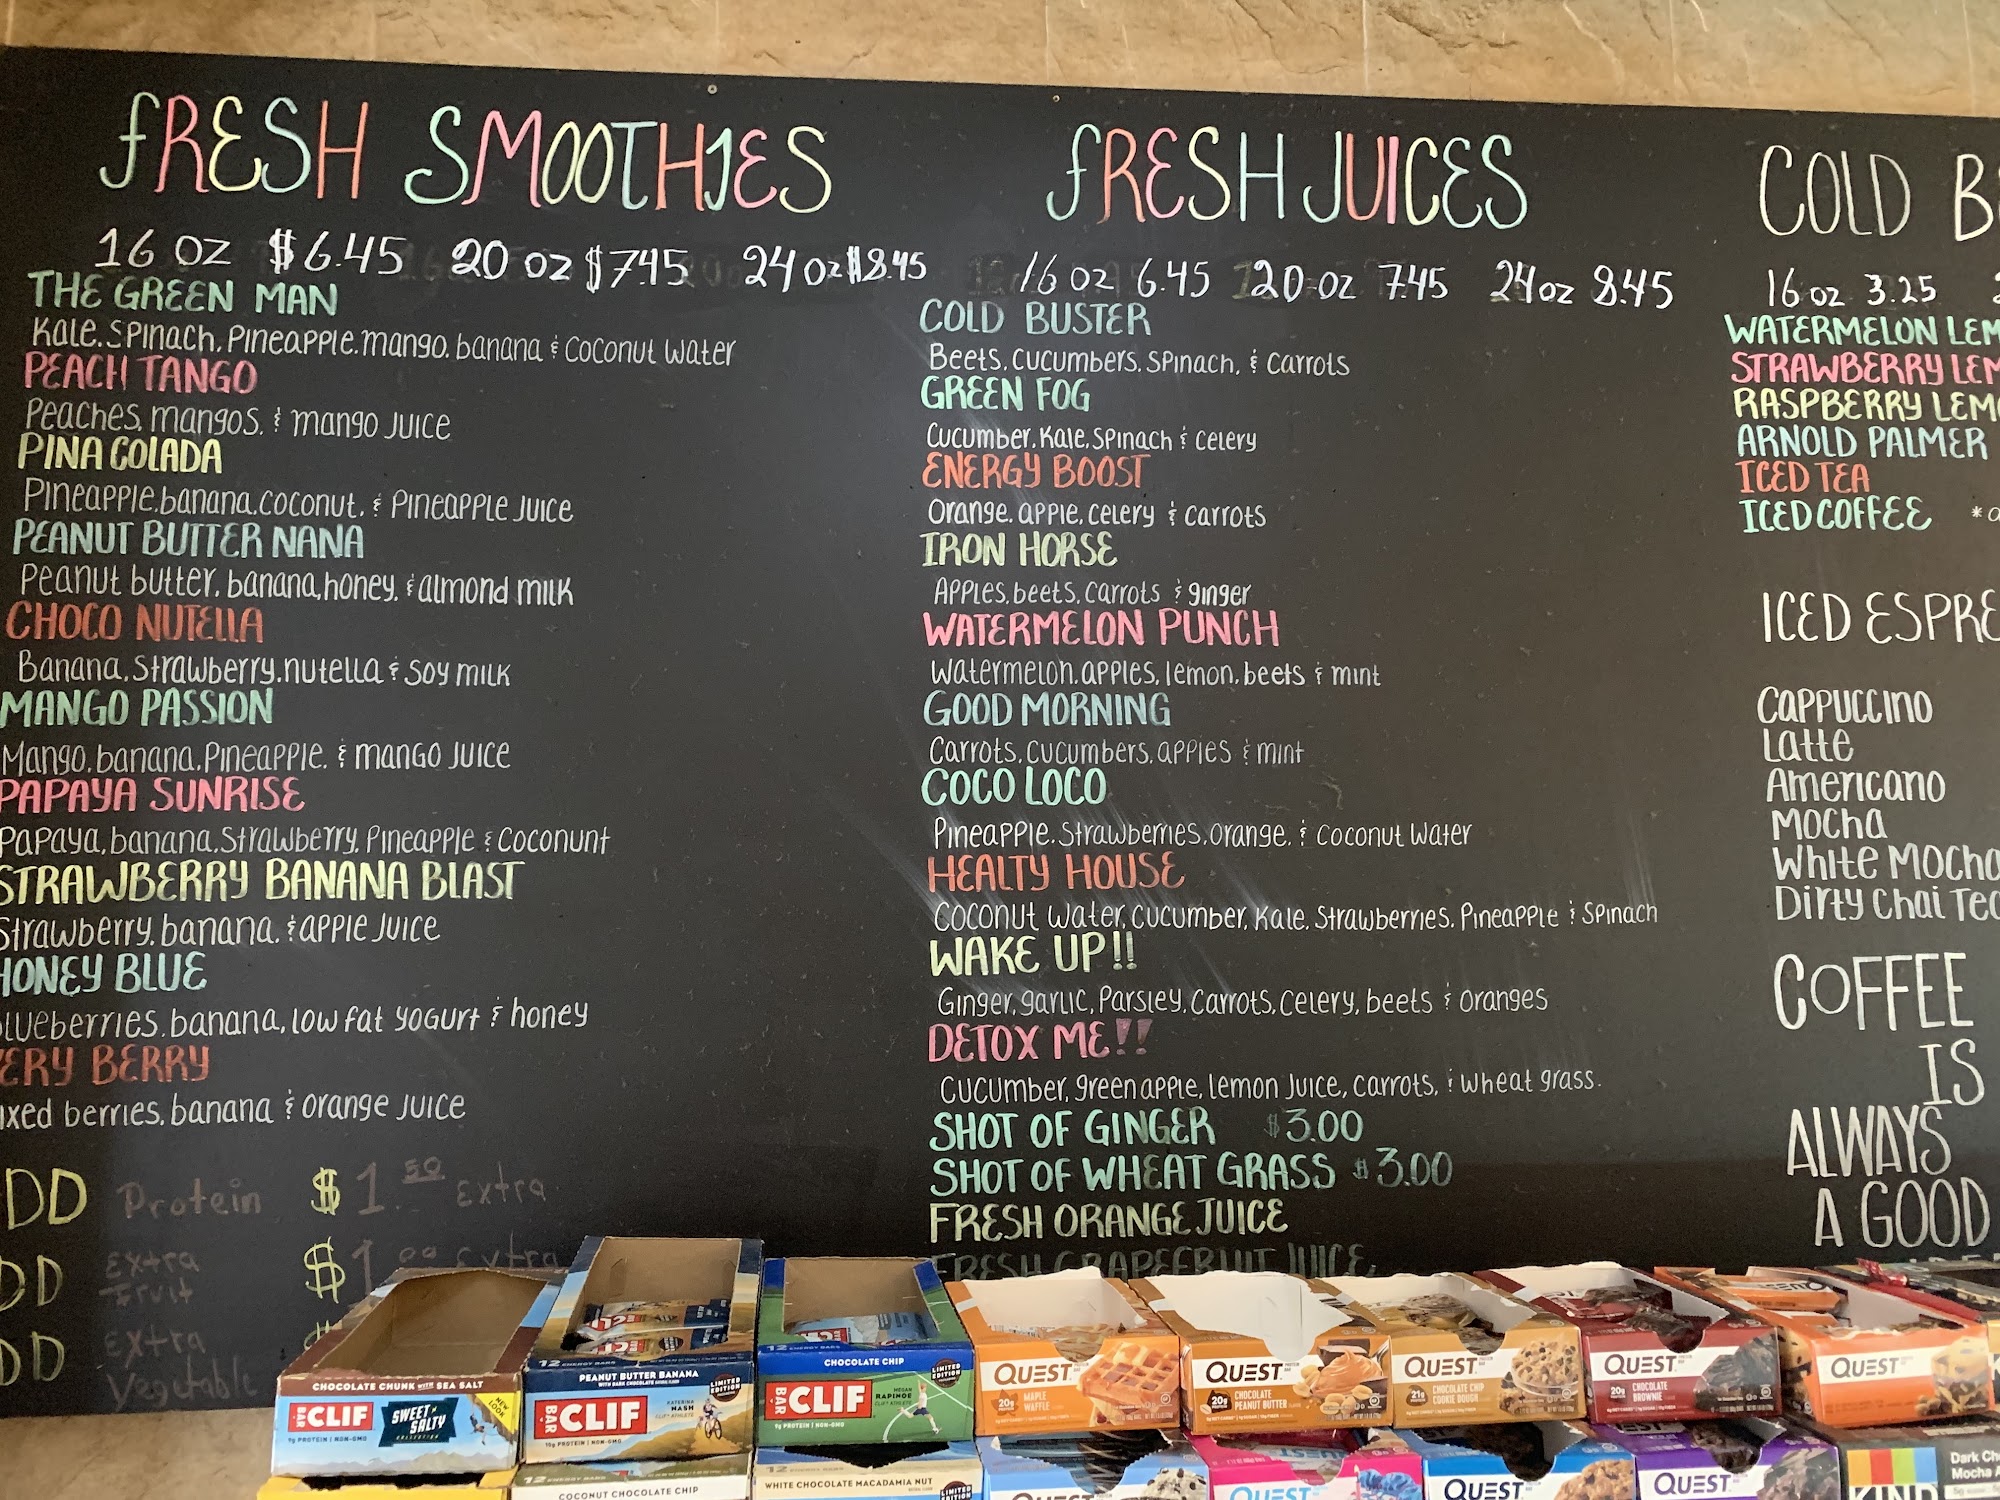 FRESH SMOOTHIES
16 oz $6.45 20 oz $7.45 24 oz $8.45
THE GREEN MAN
Kale, Spinach, Pineapple, mango, banana & Coconut Water
PEACH TANGO
Peaches, mangos, & mango Juice
PINA COLADA
Pineapple, banana, coconut, & Pineapple Juice
PEANUT BUTTER NANA
Peanut butter, banana, honey, & almond milk
CHOCO NUTELLA
Banana, Strawberry, nutella & Soy milk
MANGO PASSION
Mango, banana, Pineapple, & mango Juice
PAPAYA SUNRISE
Papaya, banana, Strawberry, Pineapple & Coconunt
STRAWBERRY BANANA BLAST
Strawberry, banana, & apple Juice
HONEY BLUE
lueberries, banana, low fat yogurt & honey
ERY BERRY
ixed berries, banana & orange Juice
DD Protein $1.50 Extra
DD Extra Fruit $1.00 Extra
DD Extra Vegetable
FRESH JUICES
16 oz 6.45 20 oz 7.45 24 oz 8.45
COLD BUSTER
Beets, Cucumbers, Spinach, & Carrots
GREEN FOG
Cucumber, Kale, Spinach & Celery
ENERGY BOOST
Orange, apple, celery & carrots
IRON HORSE
Apples, beets, carrots & ginger
WATERMELON PUNCH
Watermelon, apples, lemon, beets & mint
GOOD MORNING
Carrots, Cucumbers, apples & mint
COCO LOCO
Pineapple, Strawberries, Orange, & Coconut Water
HEALTY HOUSE
Coconut Water, Cucumber, Kale, Strawberries, Pineapple & Spinach
WAKE UP!!
Ginger, garlic, Parsley, Carrots, Celery, beets & oranges
DETOX ME!!
Cucumber, green apple, lemon Juice, carrots, & wheat grass.
SHOT OF GINGER $3.00
SHOT OF WHEAT GRASS $3.00
FRESH ORANGE JUICE
FRESH GRAPEFRUIT JUICE
COLD B
16 oz 3.25
WATERMELON LEM
STRAWBERRY LEM
RASPBERRY LEM
ARNOLD PALMER
ICED TEA
ICED COFFEE
ICED ESPRE
Cappuccino
Latte
Americano
Mocha
White Mocha
Dirty Chai Tea
COFFEE
IS
ALWAYS
A GOOD
CHOCOLATE CHUNK WITH SEA SALT
CLIF BAR
SWEET & SALTY
COLLECTION
NEW LOOK
9g PROTEIN | NON-GMO
12 ENERGY BARS
PEANUT BUTTER BANANA
WITH DARK CHOCOLATE
LIMITED EDITION
CLIF BAR
10g PROTEIN | NON-GMO
CHOCOLATE CHIP
LIMITED EDITION
CLIF BAR
MEGAN RAPINOE
9g PROTEIN | NON-GMO
QUEST
20g
MAPLE WAFFLE
QUEST
20g
CHOCOLATE PEANUT BUTTER
QUEST
21g
CHOCOLATE CHIP COOKIE DOUGH
QUEST
20g
CHOCOLATE BROWNIE
QUEST
12 ENERGY BARS
COCONUT CHOCOLATE CHIP
WHITE CHOCOLATE MACADAMIA NUT
LIMITED EDITION
QUEST
QUEST
QUEST
QUEST
KIND
Dark Ch
Mocha A